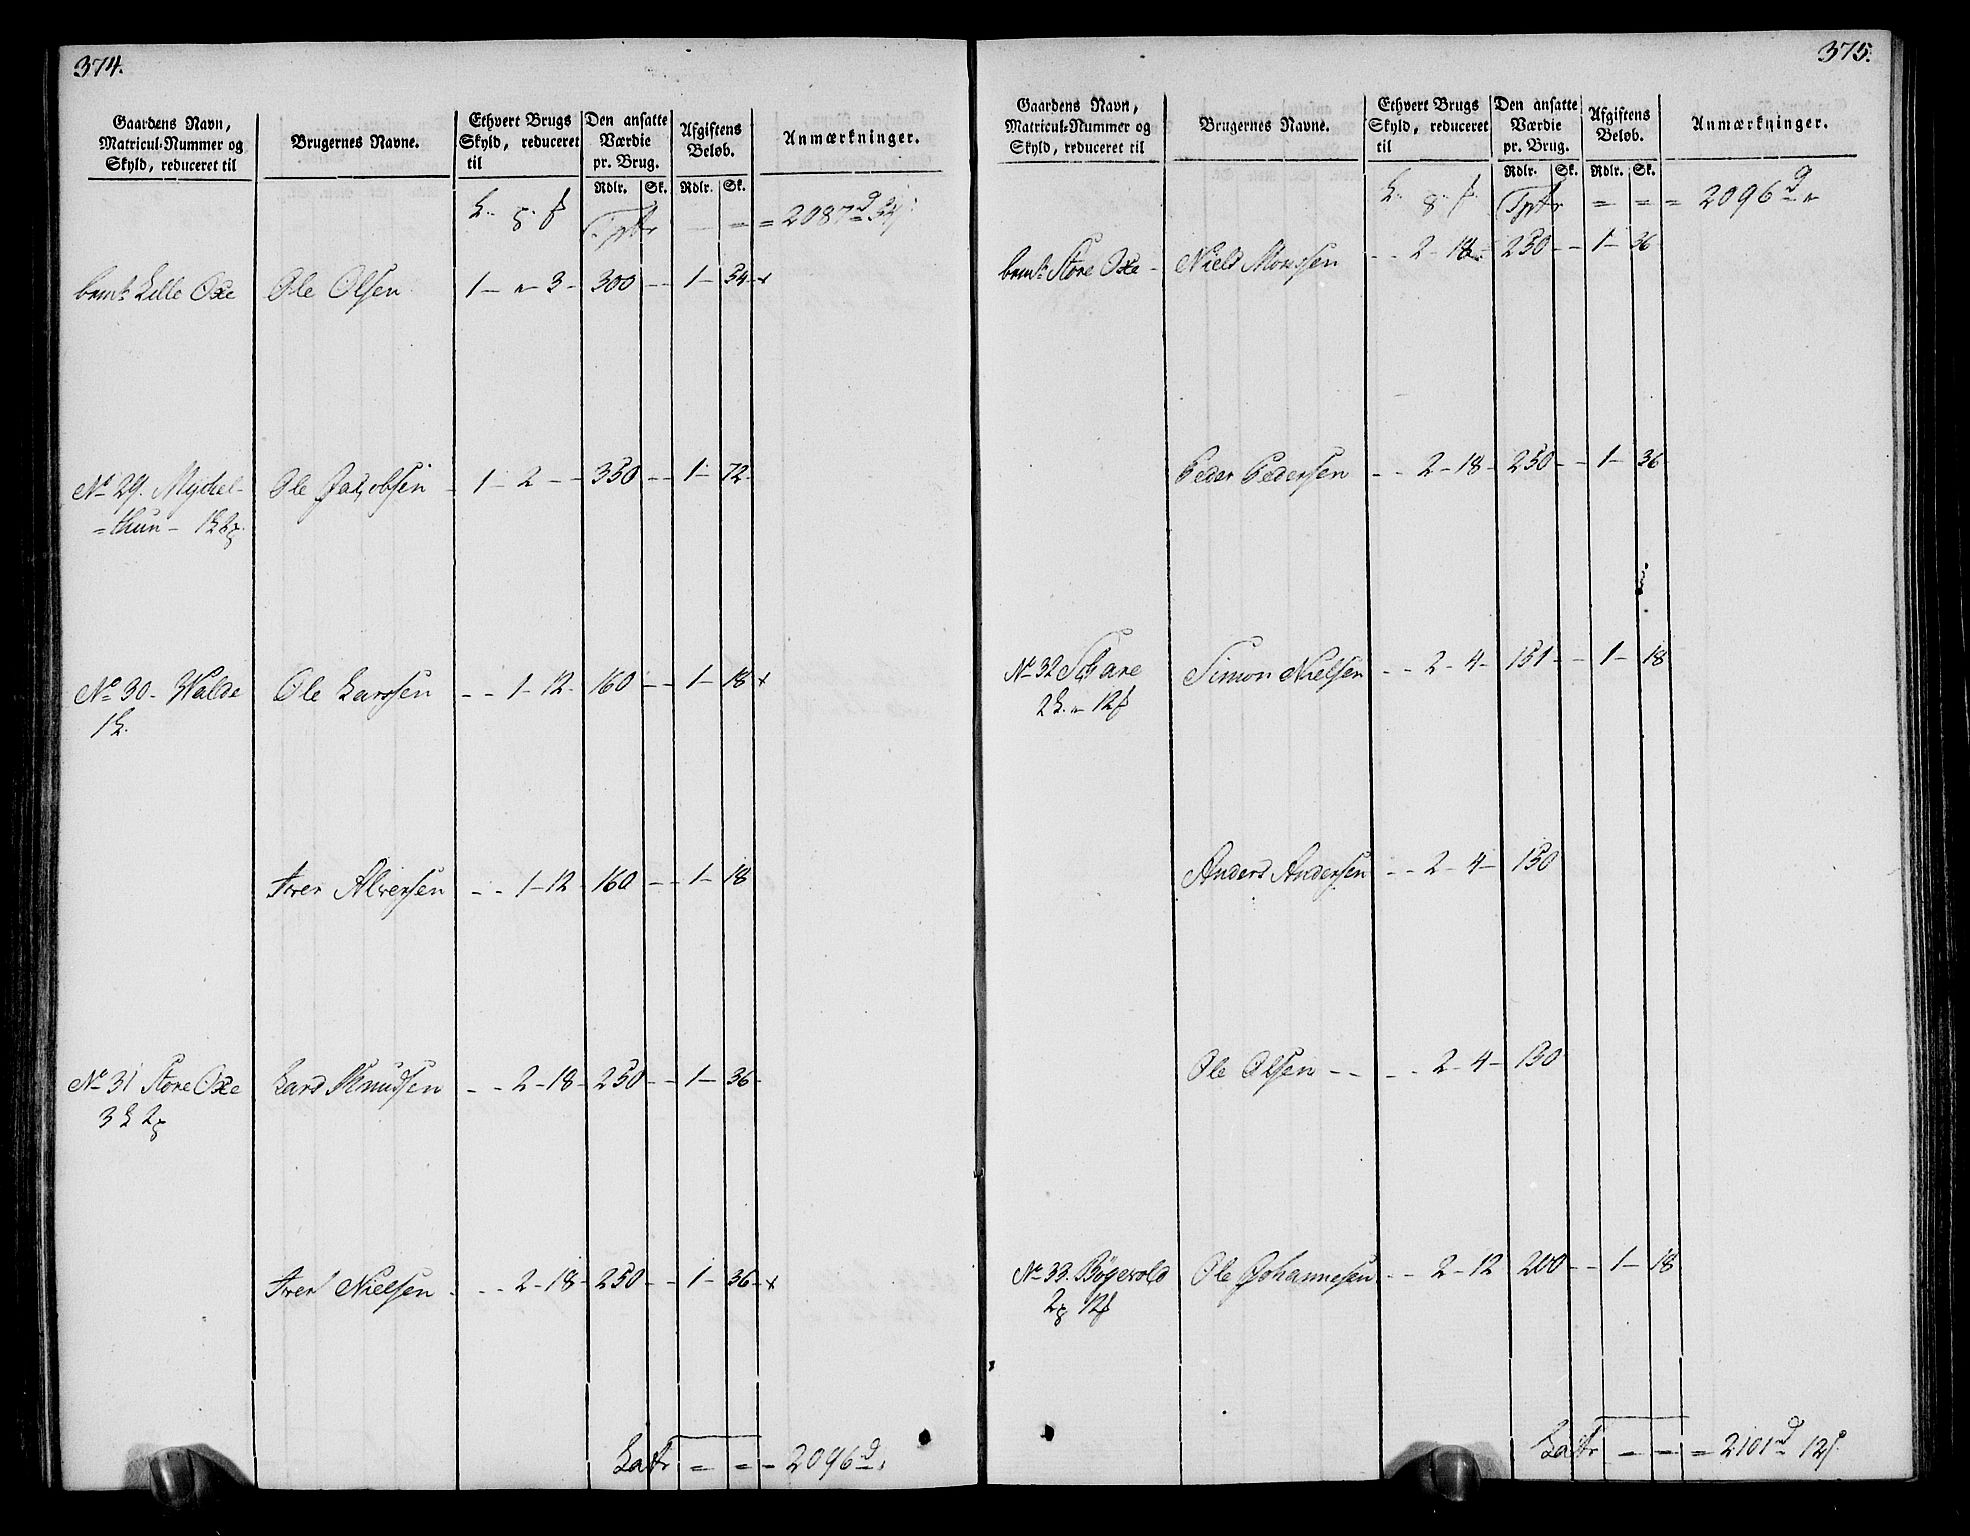 374.
Gaardens Navn, Matricul-Nummer og Skyld, reduceret til | Brugernes Navne. | Ethvert Brugs Skyld, reduceret til | Den ansatte Værdie pr. Brug. | Afgiftens Beløb. | Anmærkninger.
Rdlr. Sk. Rdlr. Sk.
Tptr = = 2087 d 54 s
bemt Lille Oxe Ole Olsen 1 — " — 3 — 300 — — 1 — 54
No 29. Myckel- Ole Jakobsen 1 — 2 — — 350 — — 1 — 72
=thun —
No 30 — Walde Ole Larssen — — 1 — 12 — 160 — — 1 — 18 x
Iver Alversen — — 1 — 12 — 160 — — 1 — 18
No 31 Store Oxe Lars Knudsen — — 2 — 18 — 250 — — 1 — 36
Iver Nielsen — — 2 — 18 — 250 — — 1 — 36 x
Latr = = = 2096 d
375.
Gaardens Navn, Matricul-Nummer og Skyld, reduceret til | Brugernes Navne. | Ethvert Brugs Skyld, reduceret til | Den ansatte Værdie pr. Brug. | Afgiftens Beløb. | Anmærkninger.
Rdlr. Sk. Rdlr. Sk.
Tptr = = = 2096 d "
bemt Store Oxe — Niels Monssen — — 2 — 18 — 250 — — 1 — 36
Peder Pedersen — — 2 — 18 — 250 — — 1 — 36
No 32 Schare Simon Nielsen — — 2 — 4 — 151 — — 1 — 18
Anders Andersen — — 2 — 4 — 150
Ole Olsen — — — — 2 — 4 — 150
No 33. Bøgevold Ole Johannesen — — 2 — 12 200 — — 1 — 18
Latr = = = 2101 d 12 s